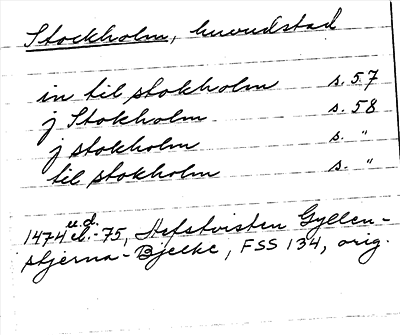 Stockholm, huvudstad
in til stokholm s. 57
j Stokholm s. 58
j stokholm s. "
til stokholm s. "
u.d.
1474 el. -75, Arfstvisten Gyllen-
stjerna-Bjelke, FSS 134, orig.